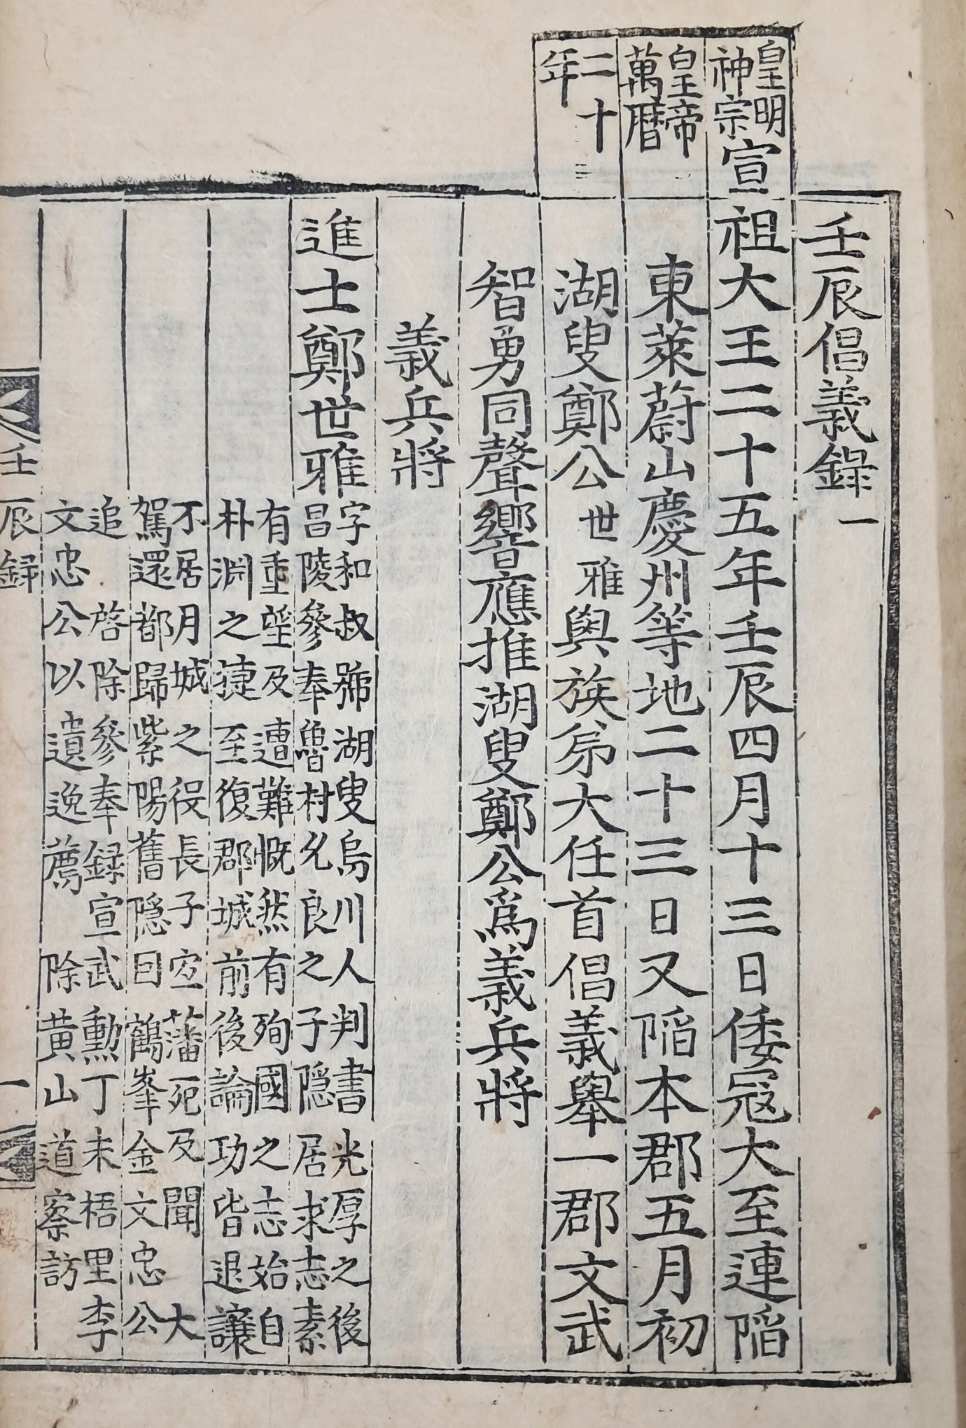 壬辰倡義錄一
皇明
神宗
皇帝
萬曆
二十
年
宣祖大王二十五年壬辰四月十三日倭寇大至連陷
東萊蔚山慶州等地二十三日又陷本郡五月初
湖叟鄭公世雅與族弟大任首倡義擧一郡文武
智勇同聲響應推湖叟鄭公爲義兵將
義兵將
進士鄭世雅
字和叔號湖叟烏川人判書光厚之後
昌陵參奉魯村允良之子隱居求志素
有重望及遭難慨然有殉國之志始自
朴淵之捷至復郡城前後論功皆退讓
不居月城之役長子宜藩死及聞大
駕還都歸紫陽舊隱曰鶴峯金文忠公
追啓除參奉録宣武勳丁未梧里李
文忠公以遺逸薦除黄山道察訪
壬辰録
一